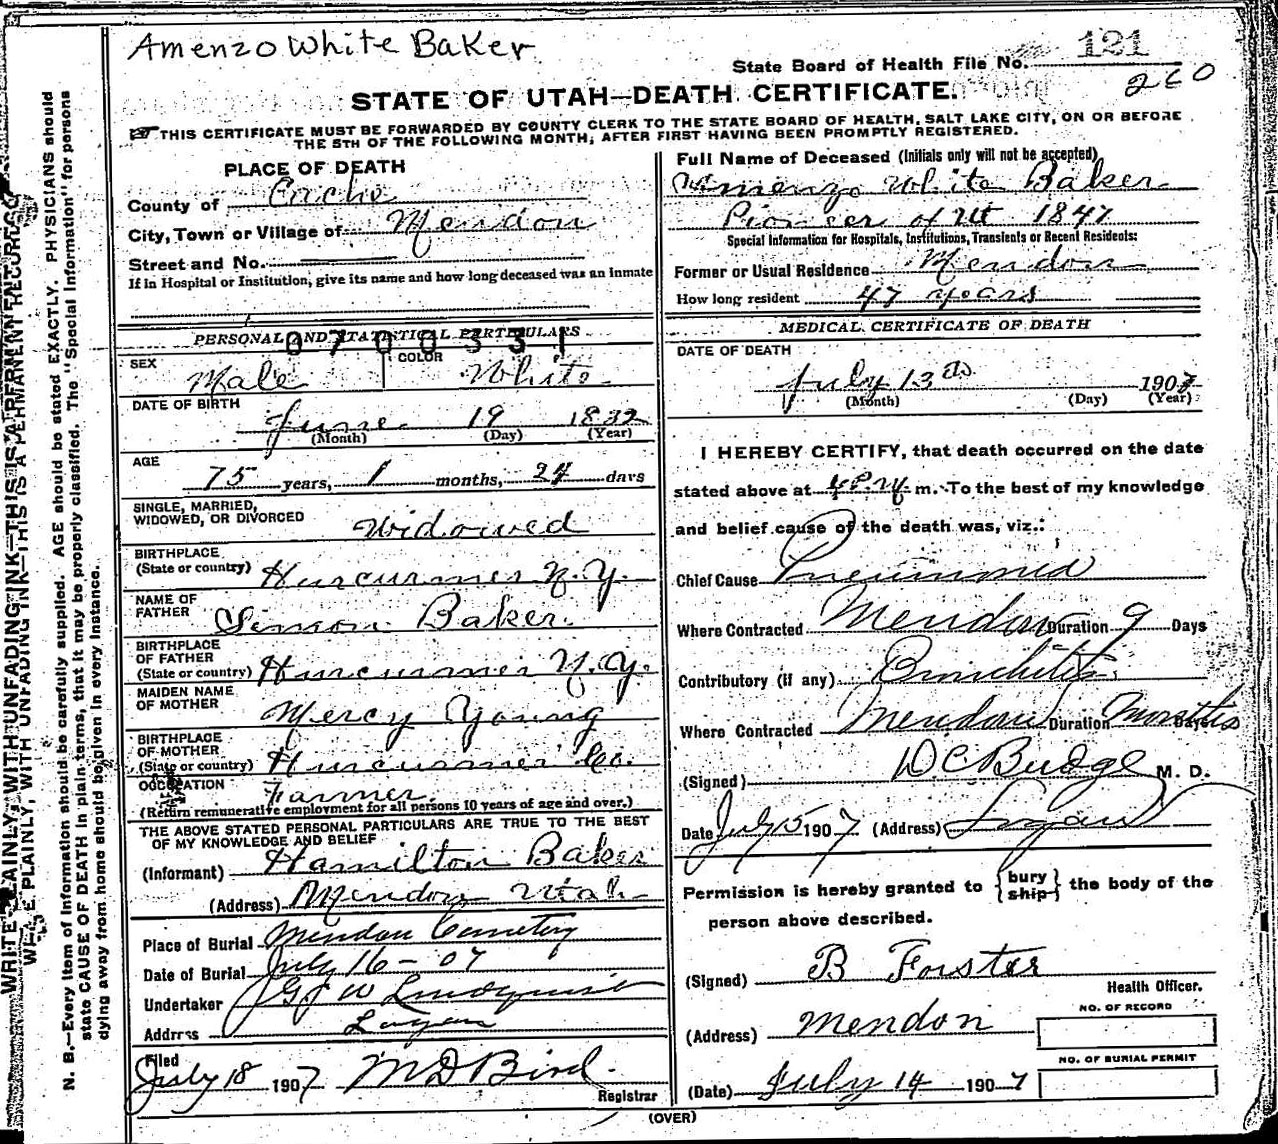 Amenzo White Baker
121
State Board of Health File No.
260
STATE OF UTAH—DEATH CERTIFICATE.
THIS CERTIFICATE MUST BE FORWARDED BY COUNTY CLERK TO THE STATE BOARD OF HEALTH, SALT LAKE CITY, ON OR BEFORE
THE 5TH OF THE FOLLOWING MONTH, AFTER FIRST HAVING BEEN PROMPTLY REGISTERED.
WRITE PLAINLY, WITH UNFADING INK—THIS IS A PERMANENT RECORD
N. B.—Every item of information should be carefully supplied. AGE should be stated EXACTLY. PHYSICIANS should
state CAUSE OF DEATH in plain terms, that it may be properly classified. The "Special Information" for persons
dying away from home should be given in every instance.
PLACE OF DEATH
County of Cache
City, Town or Village of Mendon
Street and No.
If in Hospital or Institution, give its name and how long deceased was an inmate
PERSONAL AND STATISTICAL PARTICULARS
0700331
SEX
COLOR
Male White
DATE OF BIRTH
June 19 1832
(Month) (Day) (Year)
AGE
75 years, 1 months, 24 days
SINGLE, MARRIED,
WIDOWED, OR DIVORCED Widowed
BIRTHPLACE
(State or country) Hurcurmer N.Y.
NAME OF
FATHER Simon Baker.
BIRTHPLACE
OF FATHER
(State or country) Hurcurmer N.Y.
MAIDEN NAME
OF MOTHER Mercy Young
BIRTHPLACE
OF MOTHER
(State or country) Hurcurmer Co.
OCCUPATION Farmer.
(Return remunerative employment for all persons 10 years of age and over.)
THE ABOVE STATED PERSONAL PARTICULARS ARE TRUE TO THE BEST
OF MY KNOWLEDGE AND BELIEF
(Informant) Hamilton Baker
(Address) Mendon Utah
Place of Burial Mendon Cemetery
Date of Burial July 16-07
Undertaker Lindquist
Address Logan
Filed
July 18 1907 M D Bird.
Registrar
Full Name of Deceased (Initials only will not be accepted)
Amenzo White Baker
Pioneer of Ut 1847
Special Information for Hospitals, Institutions, Transients or Recent Residents:
Former or Usual Residence Mendon
How long resident 47 years
MEDICAL CERTIFICATE OF DEATH
DATE OF DEATH
July 13th 1907
(Month) (Day) (Year)
I HEREBY CERTIFY, that death occurred on the date
stated above at m. To the best of my knowledge
and belief cause of the death was, viz.:
Chief Cause Pneumonia
Where Contracted Mendon Duration 9 Days
Contributory (if any) Bronchitis
Where Contracted Mendon Duration Months Days
(Signed) D.C. Budge M. D.
Date July 15 1907 (Address) Logan
Permission is hereby granted to {bury ship} the body of the
person above described.
(Signed) B Forster
Health Officer.
(Address) Mendon
NO. OF RECORD
NO. OF BURIAL PERMIT
(Date) July 14 1907
(OVER)